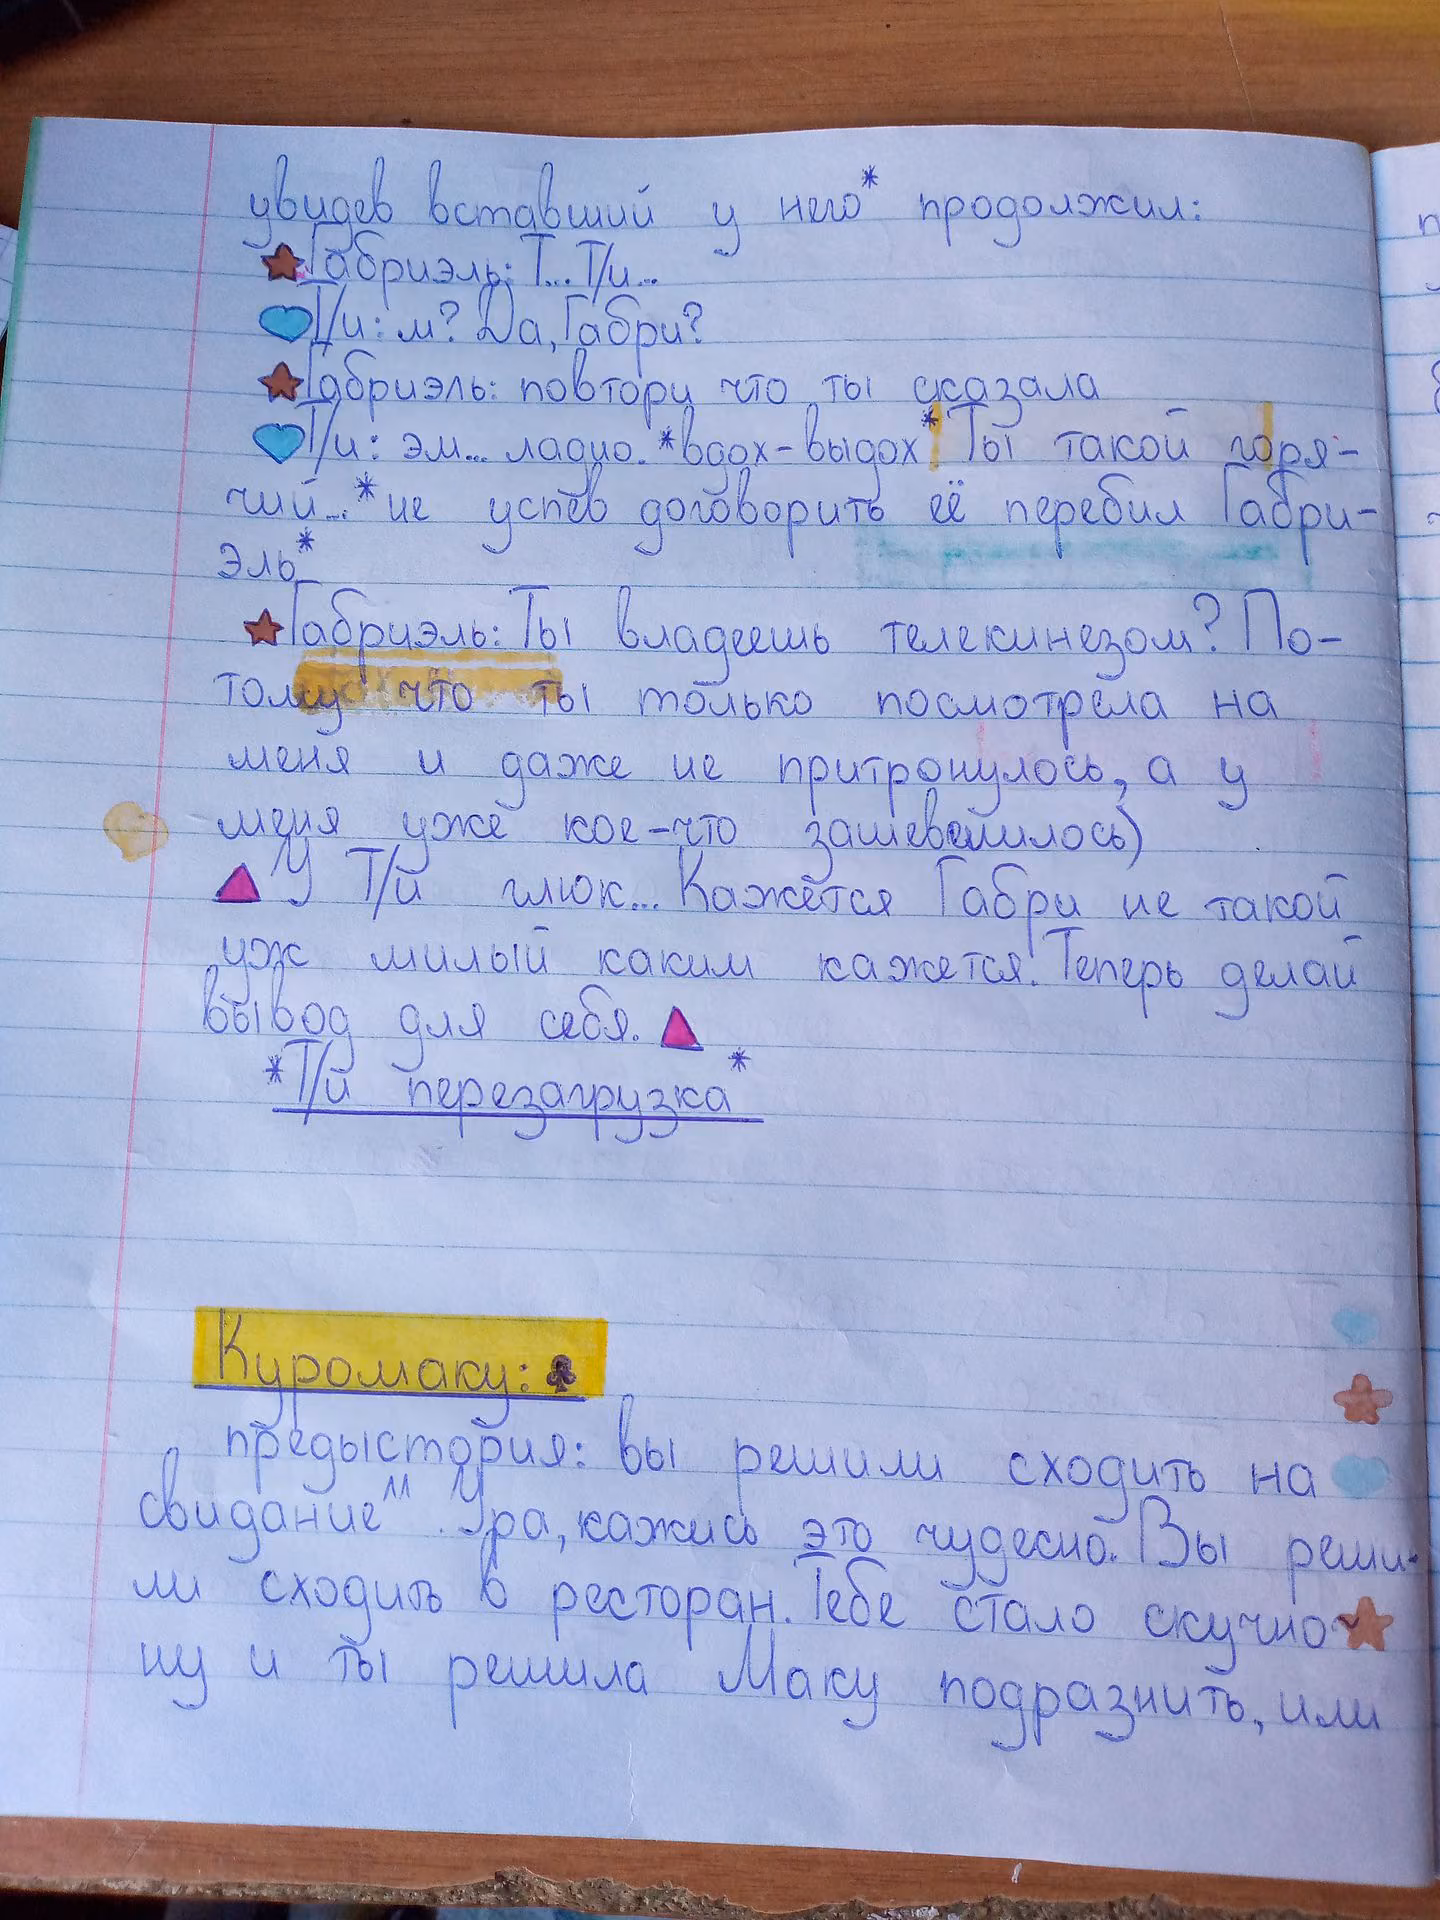 увидев вставший у него* продолжил:
Габриэль: Т... Т/и...
Т/и: м? Да, Габри?
Габриэль: повтори что ты сказала
Т/и: эм... ладно. *вдох-выдох* Ты такой горя-
чий... *не успев договорить её перебил Габри-
эль*
Габриэль: Ты владеешь телекинезом? По-
тому что ты только посмотрела на
меня и даже не притронулось, а у
меня уже кое-что зашевелилось)
У Т/и глюк... Кажется Габри не такой
уж милый каким кажется. Теперь делай
вывод для себя.
*Т/и перезагрузка*
Куромаку: ♣
предыстория: вы решили сходить на
свидание^^. Ура, кажись это чудесно. Вы реши-
ли сходить в ресторан. Тебе стало скучно
ну и ты решила Маку подразнить, или